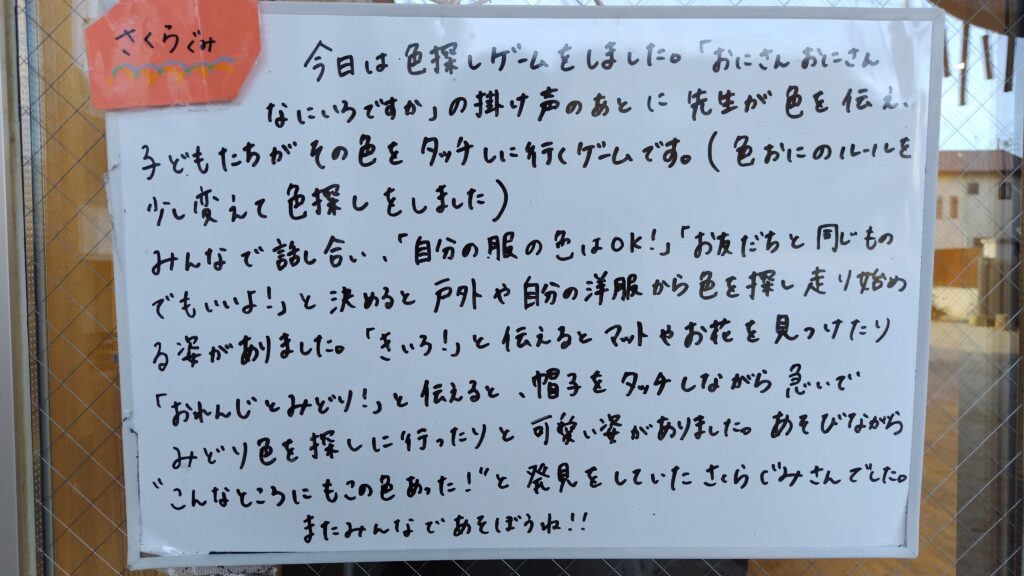 さくらぐみ
今日は色探しゲームをしました。「おにさんおにさん
なにいろですか」の掛け声のあとに先生が色を伝え、
子どもたちがその色をタッチしに行くゲームです。(色おにのルールを
少し変えて色探しをしました)
みんなで話し合い、「自分の服の色はOK!」「お友だちと同じもの
でもいいよ!」と決めると戸外や自分の洋服から色を探し走り始め
る姿がありました。「きいろ!」と伝えるとマットやお花を見つけたり
「おれんじとみどり!」と伝えると、帽子をタッチしながら急いで
みどり色を探しに行ったりと可愛い姿がありました。あそびながら
"こんなところにもこの色あった!"と発見をしていたさくらぐみさんでした。
またみんなであそぼうね!!